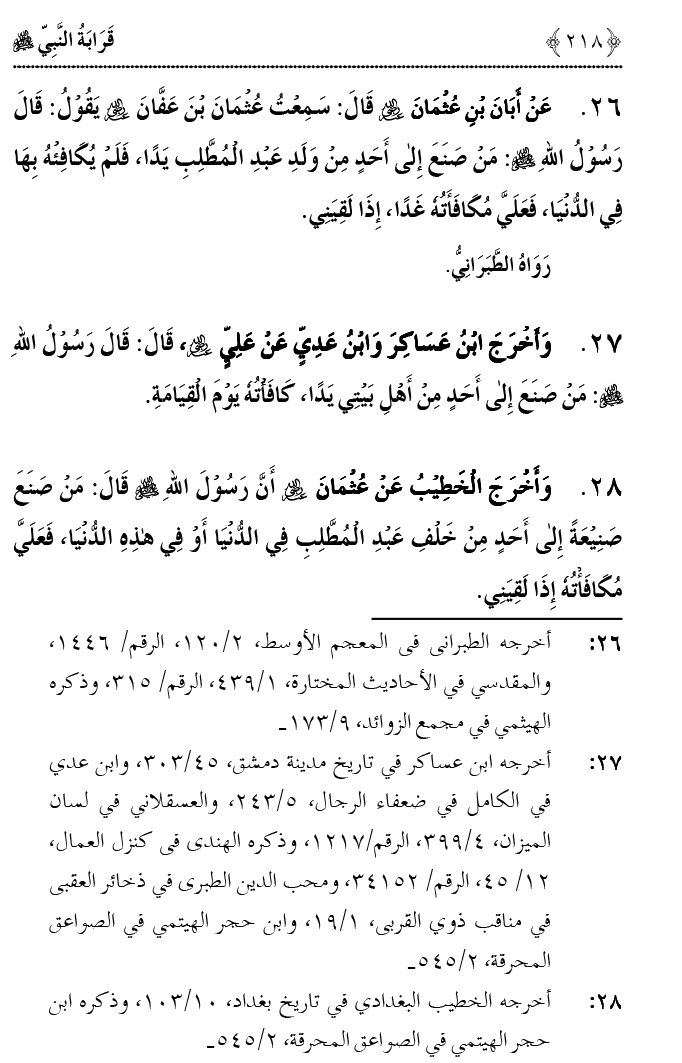 ﴿٢١٨﴾ قَرَابَةُ النَّبِيِّ ﷺ
٢٦. عَنْ أَبَانَ بْنِ عُثْمَانَ ؓ قَالَ: سَمِعْتُ عُثْمَانَ بْنَ عَفَّانَ ؓ يَقُوْلُ: قَالَ
رَسُوْلُ اللهِ ﷺ: مَنْ صَنَعَ إِلٰى أَحَدٍ مِنْ وَلَدِ عَبْدِ الْمُطَّلِبِ يَدًا، فَلَمْ يُكَافِئْهُ بِهَا
فِي الدُّنْيَا، فَعَلَيَّ مُكَافَأَتُهٗ غَدًا، إِذَا لَقِيَنِي.
رَوَاهُ الطَّبَرَانِيُّ.
٢٧. وَأَخْرَجَ ابْنُ عَسَاكِرَ وَابْنُ عَدِيٍّ عَنْ عَلِيٍّ ؓ، قَالَ: قَالَ رَسُوْلُ اللهِ
ﷺ: مَنْ صَنَعَ إِلٰى أَحَدٍ مِنْ أَهْلِ بَيْتِي يَدًا، كَافَأْتُهٗ يَوْمَ الْقِيَامَةِ.
٢٨. وَأَخْرَجَ الْخَطِيْبُ عَنْ عُثْمَانَ ؓ أَنَّ رَسُوْلَ اللهِ ﷺ قَالَ: مَنْ صَنَعَ
صَنِيْعَةً إِلٰى أَحَدٍ مِنْ خَلْفِ عَبْدِ الْمُطَّلِبِ فِي الدُّنْيَا أَوْ فِي هٰذِهِ الدُّنْيَا، فَعَلَيَّ
مُكَافَأَتُهٗ إِذَا لَقِيَنِي.
٢٦: أخرجه الطبرانى فى المعجم الأوسط، ١٢٠/٢، الرقم/ ١٤٤٦،
والمقدسي في الأحاديث المختارة، ٤٣٩/١، الرقم/ ٣١٥، وذكره
الهيثمي في مجمع الزوائد، ١٧٣/٩ـ
٢٧: أخرجه ابن عساكر في تاريخ مدينة دمشق، ٣٠٣/٤٥، وابن عدي
في الكامل في ضعفاء الرجال، ٢٤٣/٥، والعسقلاني في لسان
الميزان، ٣٩٩/٤، الرقم/١٢١٧، وذكره الهندى فى كنزل العمال،
١٢/ ٤٥، الرقم/ ٣٤١٥٢، ومحب الدين الطبرى في ذخائر العقبى
في مناقب ذوي القربى، ١٩/١، وابن حجر الهيتمي في الصواعق
المحرقة، ٥٤٥/٢ـ
٢٨: أخرجه الخطيب البغدادي في تاريخ بغداد، ١٠٣/١٠، وذكره ابن
حجر الهيتمي في الصواعق المحرقة، ٥٤٥/٢ـ